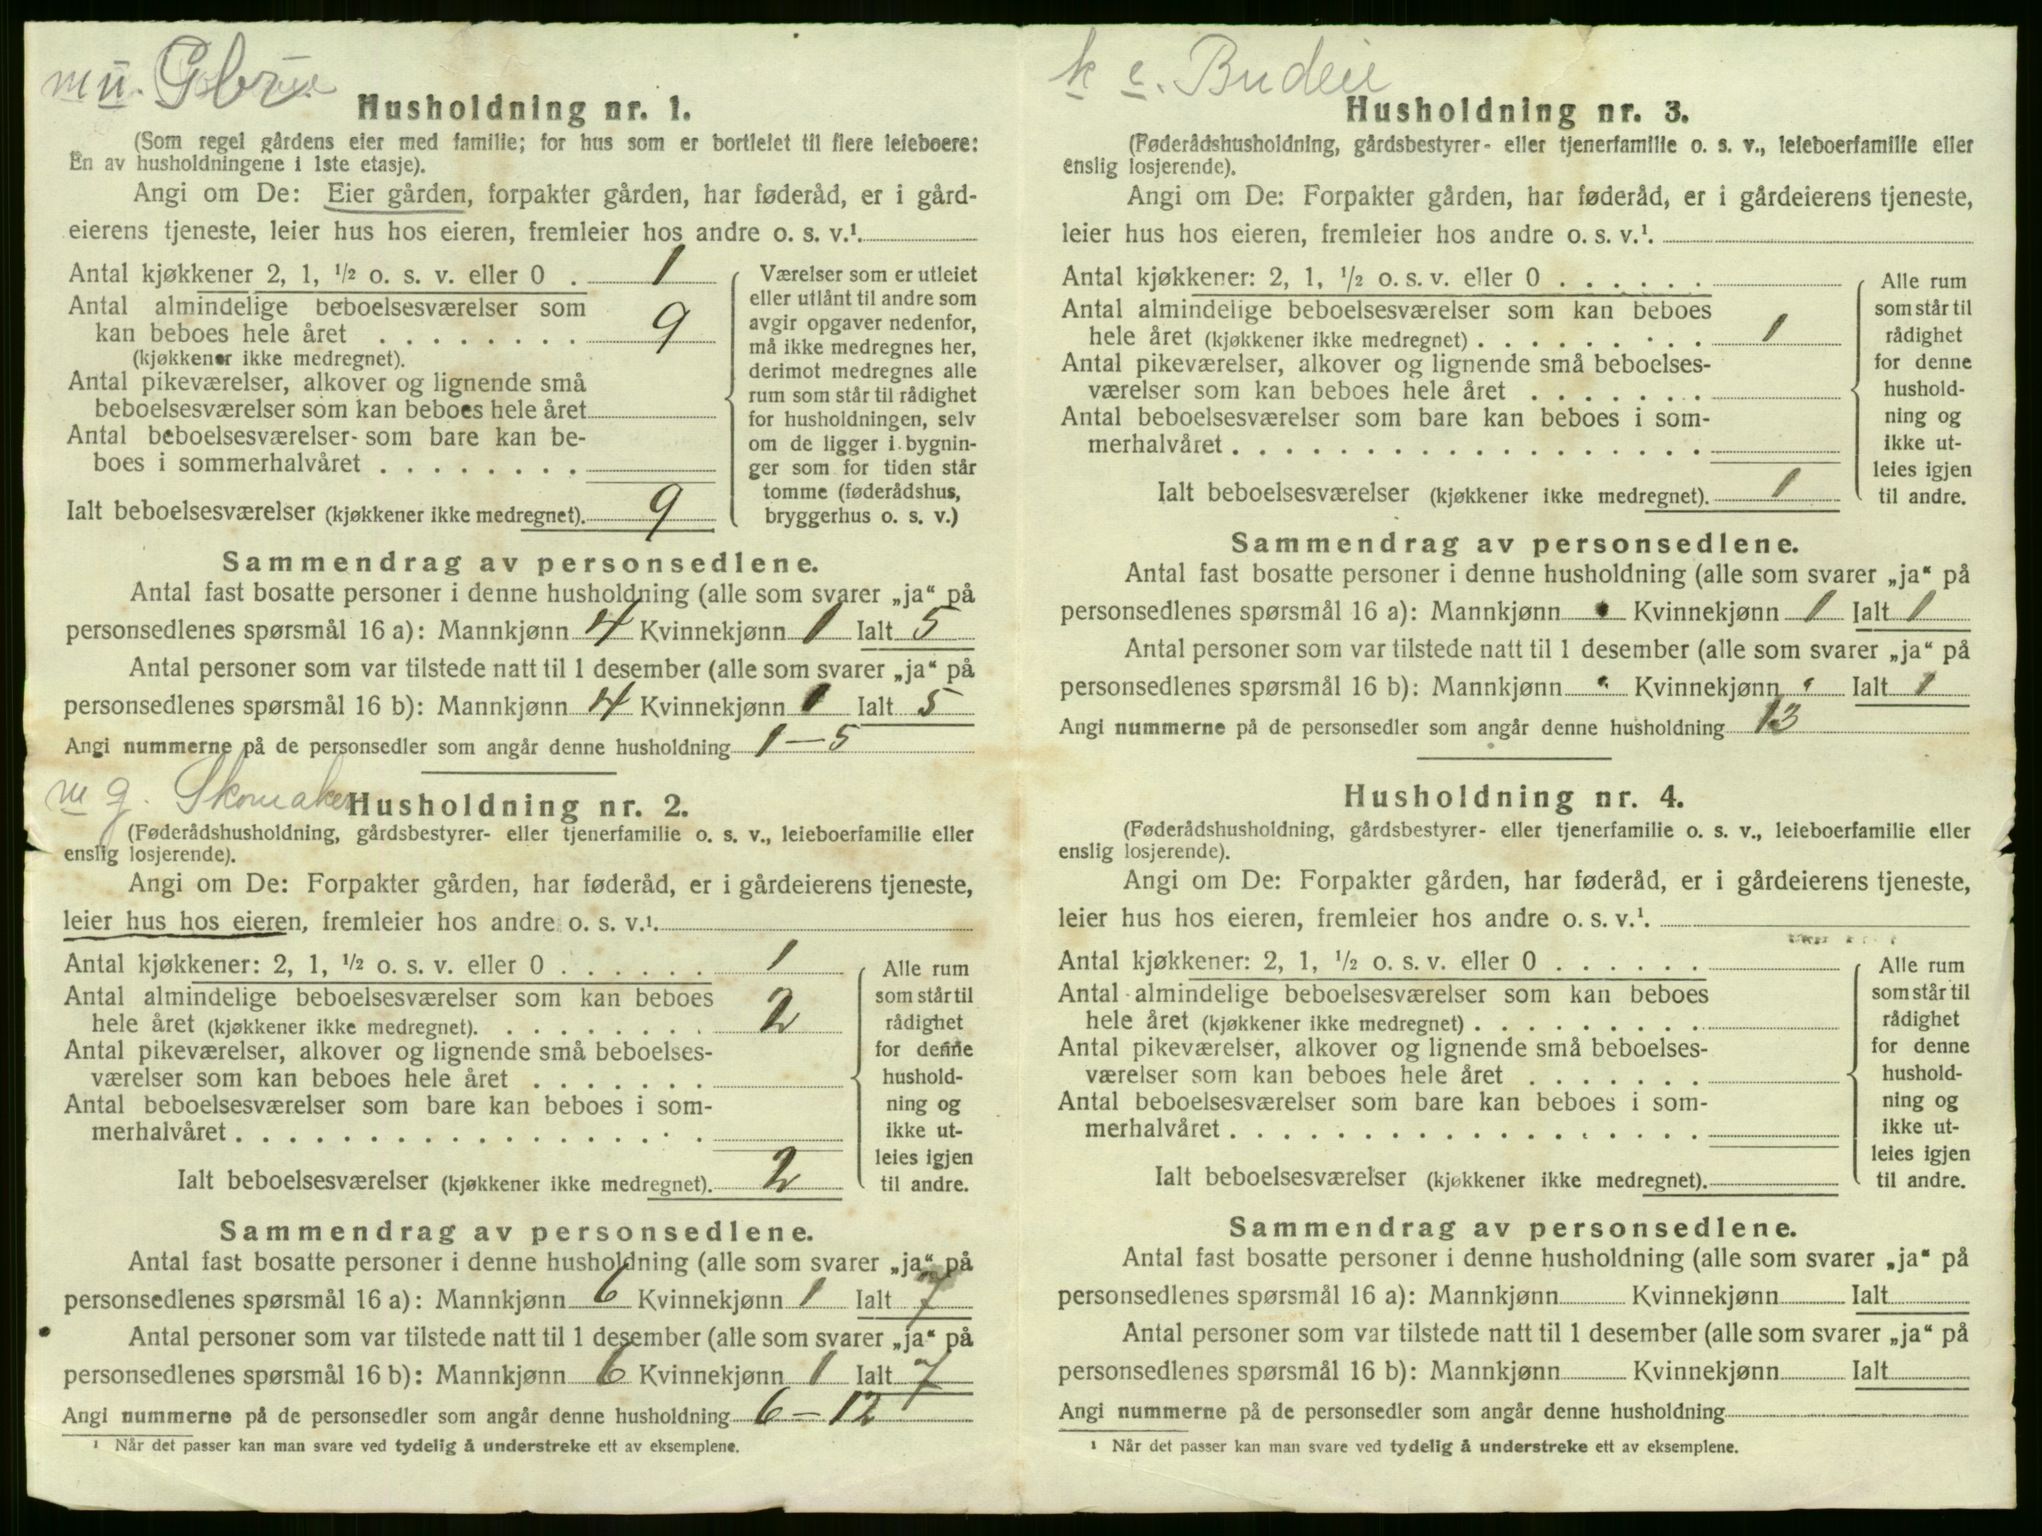 m ü. Gbr
Husholdning nr. 1.
(Som regel gårdens eier med familie; for hus som er bortleiet til flere leieboere:
En av husholdningene i 1ste etasje).
Angi om De: Eier gården, forpakter gården, har føderåd, er i gård-
eierens tjeneste, leier hus hos eieren, fremleier hos andre o. s. v.¹.
Antal kjøkkener 2, 1, ½ o. s. v. eller 0 . 1
Antal almindelige beboelsesværelser som
kan beboes hele året . . . . . . . . 9
(kjøkkener ikke medregnet).
Antal pikeværelser, alkover og lignende små
beboelsesværelser som kan beboes hele året
Antal beboelsesværelser som bare kan be-
boes i sommerhalvåret . . . . . . . .
Ialt beboelsesværelser (kjøkkener ikke medregnet). 9
Værelser som er utleiet
eller utlånt til andre som
avgir opgaver nedenfor,
må ikke medregnes her,
derimot medregnes alle
rum som står til rådighet
for husholdningen, selv
om de ligger i bygnin-
ger som for tiden står
tomme (føderådshus,
bryggerhus o. s. v.)
Sammendrag av personsedlene.
Antal fast bosatte personer i denne husholdning (alle som svarer „ja“ på
personsedlenes spørsmål 16 a): Mannkjønn 4 Kvinnekjønn 1 Ialt 5
Antal personer som var tilstede natt til 1 desember (alle som svarer „ja“ på
personsedlenes spørsmål 16 b): Mannkjønn 4 Kvinnekjønn 1 Ialt 5
Angi nummerne på de personsedler som angår denne husholdning 1 – 5
m g. Skomaker
Husholdning nr. 2.
(Føderådshusholdning, gårdsbestyrer- eller tjenerfamilie o. s. v., leieboerfamilie eller
enslig losjerende).
Angi om De: Forpakter gården, har føderåd, er i gårdeierens tjeneste,
leier hus hos eieren, fremleier hos andre o. s. v.¹.
Antal kjøkkener: 2, 1, ½ o. s. v. eller 0 . . . . . . 1
Antal almindelige beboelsesværelser som kan beboes
hele året (kjøkkener ikke medregnet). . . . . . . . . 2
Antal pikeværelser, alkover og lignende små beboelses-
værelser som kan beboes hele året . . . . . . .
Antal beboelsesværelser som bare kan beboes i som-
merhalvåret . . . . . . . . . . . . . . . . . .
Ialt beboelsesværelser (kjøkkener ikke medregnet). 2
Alle rum
som står til
rådighet
for denne
hushold-
ning og
ikke ut-
leies igjen
til andre.
Sammendrag av personsedlene.
Antal fast bosatte personer i denne husholdning (alle som svarer „ja“ på
personsedlenes spørsmål 16 a): Mannkjønn 6 Kvinnekjønn 1 Ialt 7
Antal personer som var tilstede natt til 1 desember (alle som svarer „ja“ på
personsedlenes spørsmål 16 b): Mannkjønn 6 Kvinnekjønn 1 Ialt 7
Angi nummerne på de personsedler som angår denne husholdning 6 – 12
¹ Når det passer kan man svare ved tydelig å understreke ett av eksemplene.
k e. Budeie
Husholdning nr. 3.
(Føderådshusholdning, gårdsbestyrer- eller tjenerfamilie o. s. v., leieboerfamilie eller
enslig losjerende).
Angi om De: Forpakter gården, har føderåd, er i gårdeierens tjeneste,
leier hus hos eieren, fremleier hos andre o. s. v.¹.
Antal kjøkkener: 2, 1, ½ o. s. v. eller 0 . . . . . .
Antal almindelige beboelsesværelser som kan beboes
hele året (kjøkkener ikke medregnet) . . . . . . . . . 1
Antal pikeværelser, alkover og lignende små beboelses-
værelser som kan beboes hele året . . . . . . .
Antal beboelsesværelser som bare kan beboes i som-
merhalvåret . . . . . . . . . . . . . . . . . .
Ialt beboelsesværelser (kjøkkener ikke medregnet). 1
Alle rum
som står til
rådighet
for denne
hushold-
ning og
ikke ut-
leies igjen
til andre.
Sammendrag av personsedlene.
Antal fast bosatte personer i denne husholdning (alle som svarer „ja“ på
personsedlenes spørsmål 16 a): Mannkjønn • Kvinnekjønn 1 Ialt 1
Antal personer som var tilstede natt til 1 desember (alle som svarer „ja“ på
personsedlenes spørsmål 16 b): Mannkjønn " Kvinnekjønn ' Ialt 1
Angi nummerne på de personsedler som angår denne husholdning 13
Husholdning nr. 4.
(Føderådshusholdning, gårdsbestyrer- eller tjenerfamilie o. s. v., leieboerfamilie eller
enslig losjerende).
Angi om De: Forpakter gården, har føderåd, er i gårdeierens tjeneste,
leier hus hos eieren, fremleier hos andre o. s. v.¹.
Antal kjøkkener: 2, 1, ½ o. s. v. eller 0 . . . . . .
Antal almindelige beboelsesværelser som kan beboes
hele året (kjøkkener ikke medregnet) . . . . . . . . .
Antal pikeværelser, alkover og lignende små beboelses-
værelser som kan beboes hele året . . . . . . .
Antal beboelsesværelser som bare kan beboes i som-
merhalvåret . . . . . . . . . . . . . . . . . .
Ialt beboelsesværelser (kjøkkener ikke medregnet).
Alle rum
som står til
rådighet
for denne
hushold-
ning og
ikke ut-
leies igjen
til andre.
Sammendrag av personsedlene.
Antal fast bosatte personer i denne husholdning (alle som svarer „ja“ på
personsedlenes spørsmål 16 a): Mannkjønn Kvinnekjønn Ialt
Antal personer som var tilstede natt til 1 desember (alle som svarer „ja“ på
personsedlenes spørsmål 16 b): Mannkjønn Kvinnekjønn Ialt
Angi nummerne på de personsedler som angår denne husholdning
¹ Når det passer kan man svare ved tydelig å understreke ett av eksemplene.